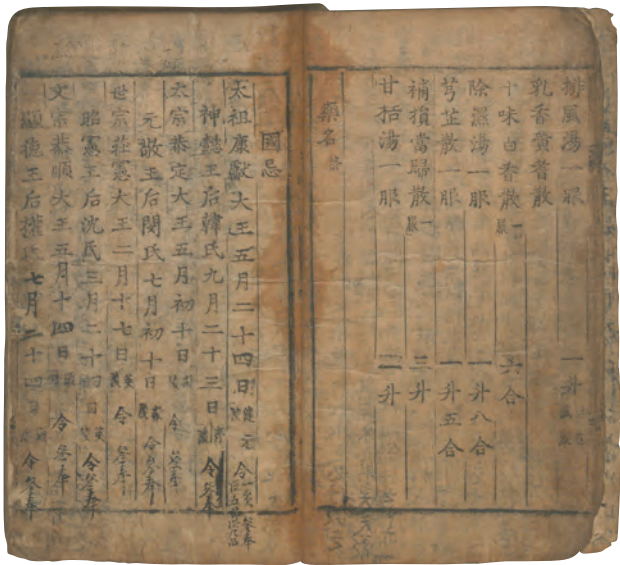 排風湯一服 一升
乳香黄耆散
十味白香散一服 六合
除濕湯一服 一升八合
芎芷散一服 一升五合
補損當歸散一服 三升
甘括湯一服 二升
藥名終
國忌
太祖康獻大王五月二十四日健元陵 令一員 參奉
神懿王后韓氏九月二十三日齊陵 令參奉
太宗恭定大王五月初十日獻陵 令參奉
元敬王后閔氏七月初十日 令參奉
世宗莊憲大王二月十七日英陵 令參奉
昭憲王后沈氏三月二十四日英陵 令參奉
文宗恭順大王五月十四日顯陵 令參奉
顯德王后權氏七月二十四日 令參奉